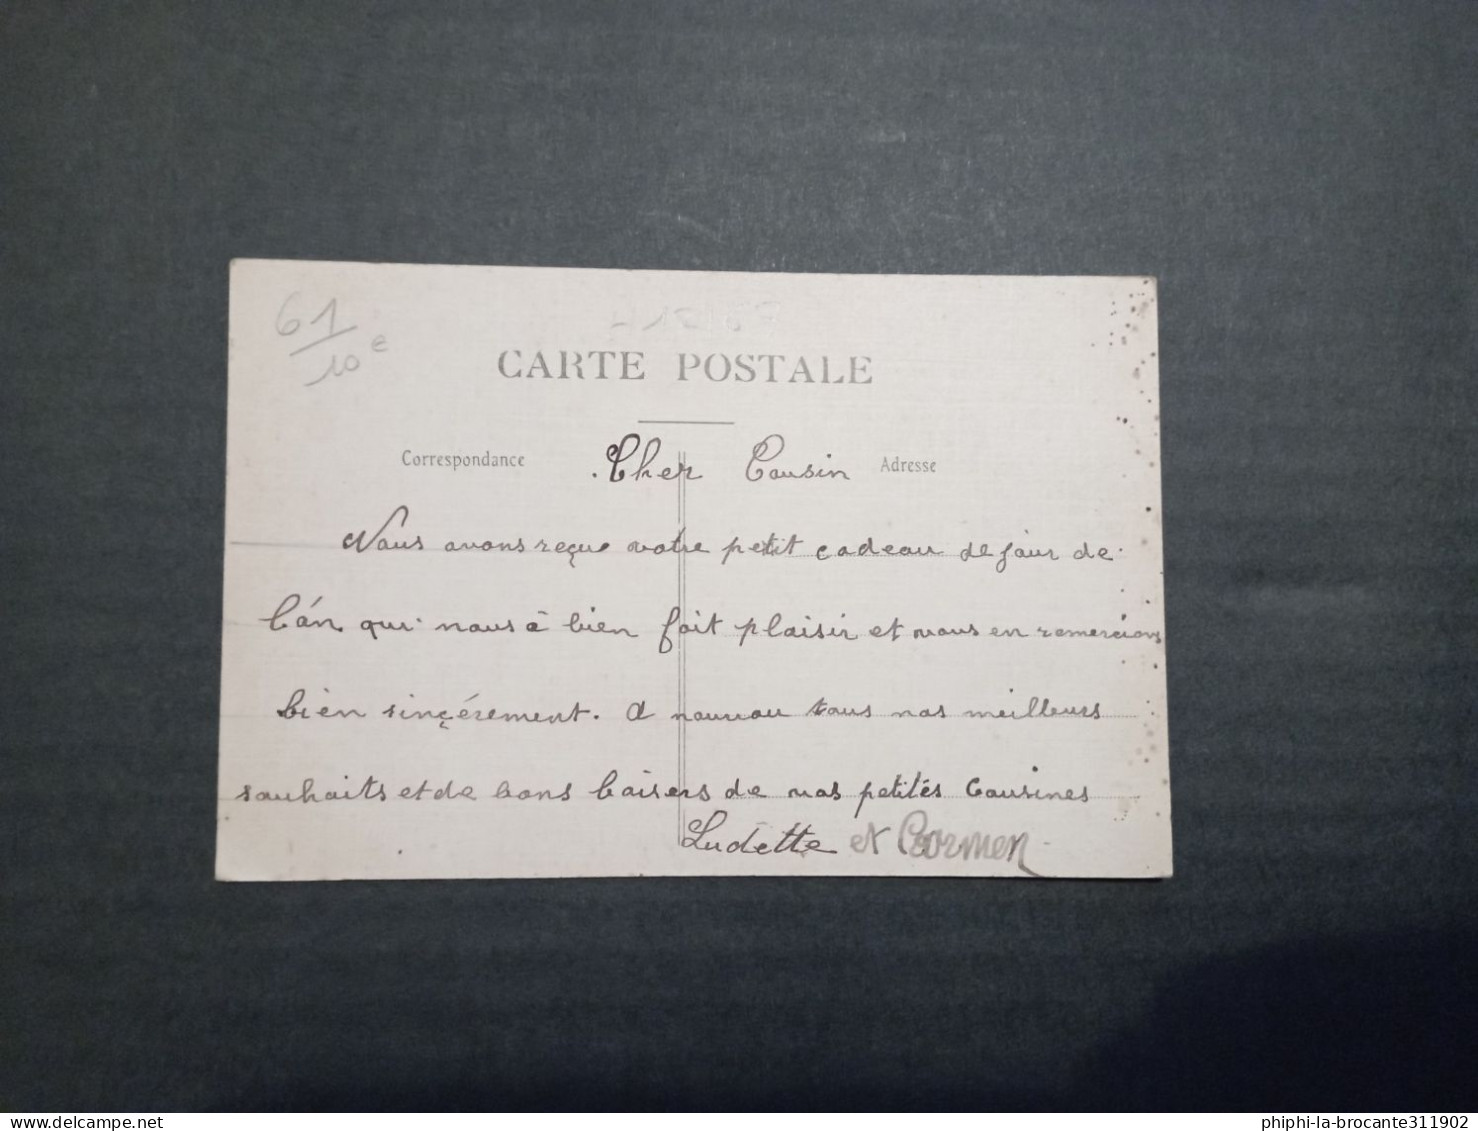 61
10e
CARTE POSTALE
Correspondance
Adresse
Cher Cousin
Nous avons reçue votre petit cadeau de jour de
l'án qui nous à bien fait plaisir et vous en remercions
bien sinçérement. A nouveau tous nos meilleurs
souhaits et de bons baisers de vos petites Cousines
Ludette et Carmen
phiphi-la-brocante311902